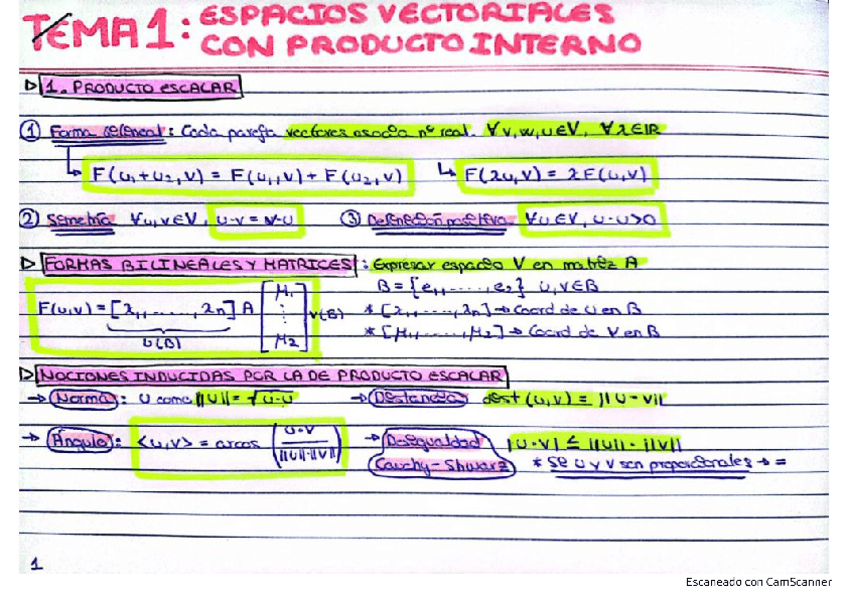 TEMA 1: ESPACIOS VECTORIALES
CON PRODUCTO INTERNO
▷ 1. PRODUCTO ESCALAR
① Forma bilineal: Cada pareja vectores asocia nº real. ∀v,w,u∈V, ∀λ∈ℝ
F(u₁+u₂,v) = F(u₁,v) + F(u₂,v) ↳ F(λu,v) = λF(u,v)
② Simetría ∀u,v∈V, u·v = v·u ③ Definición positiva: ∀u∈V, u·u>0
▷ FORMAS BILINEALES Y MATRICES: Expresar espacio V en matriz A
F(u,v) = [λ₁, ..., λn] A [μ₁ ⋮ μ₂] v(B) B = {e₁, ..., e₂} u,v∈B
u(B) * [λ₁, ..., λn] → Coord de u en B
* [μ₁, ..., μ₂] → Coord de v en B
▷ NOCIONES INDUCIDAS POR LA DE PRODUCTO ESCALAR
→ Norma: u como ||u|| = √u·u → Distancia dist(u,v) = ||u-v||
→ Ángulo: <u,v> = arcos (u·v / ||u||·||v||) → Desigualdad |u·v| ≤ ||u||·||v||
Cauchy-Shwarz * Si u y v son proporcionales → =
1
Escaneado con CamScanner